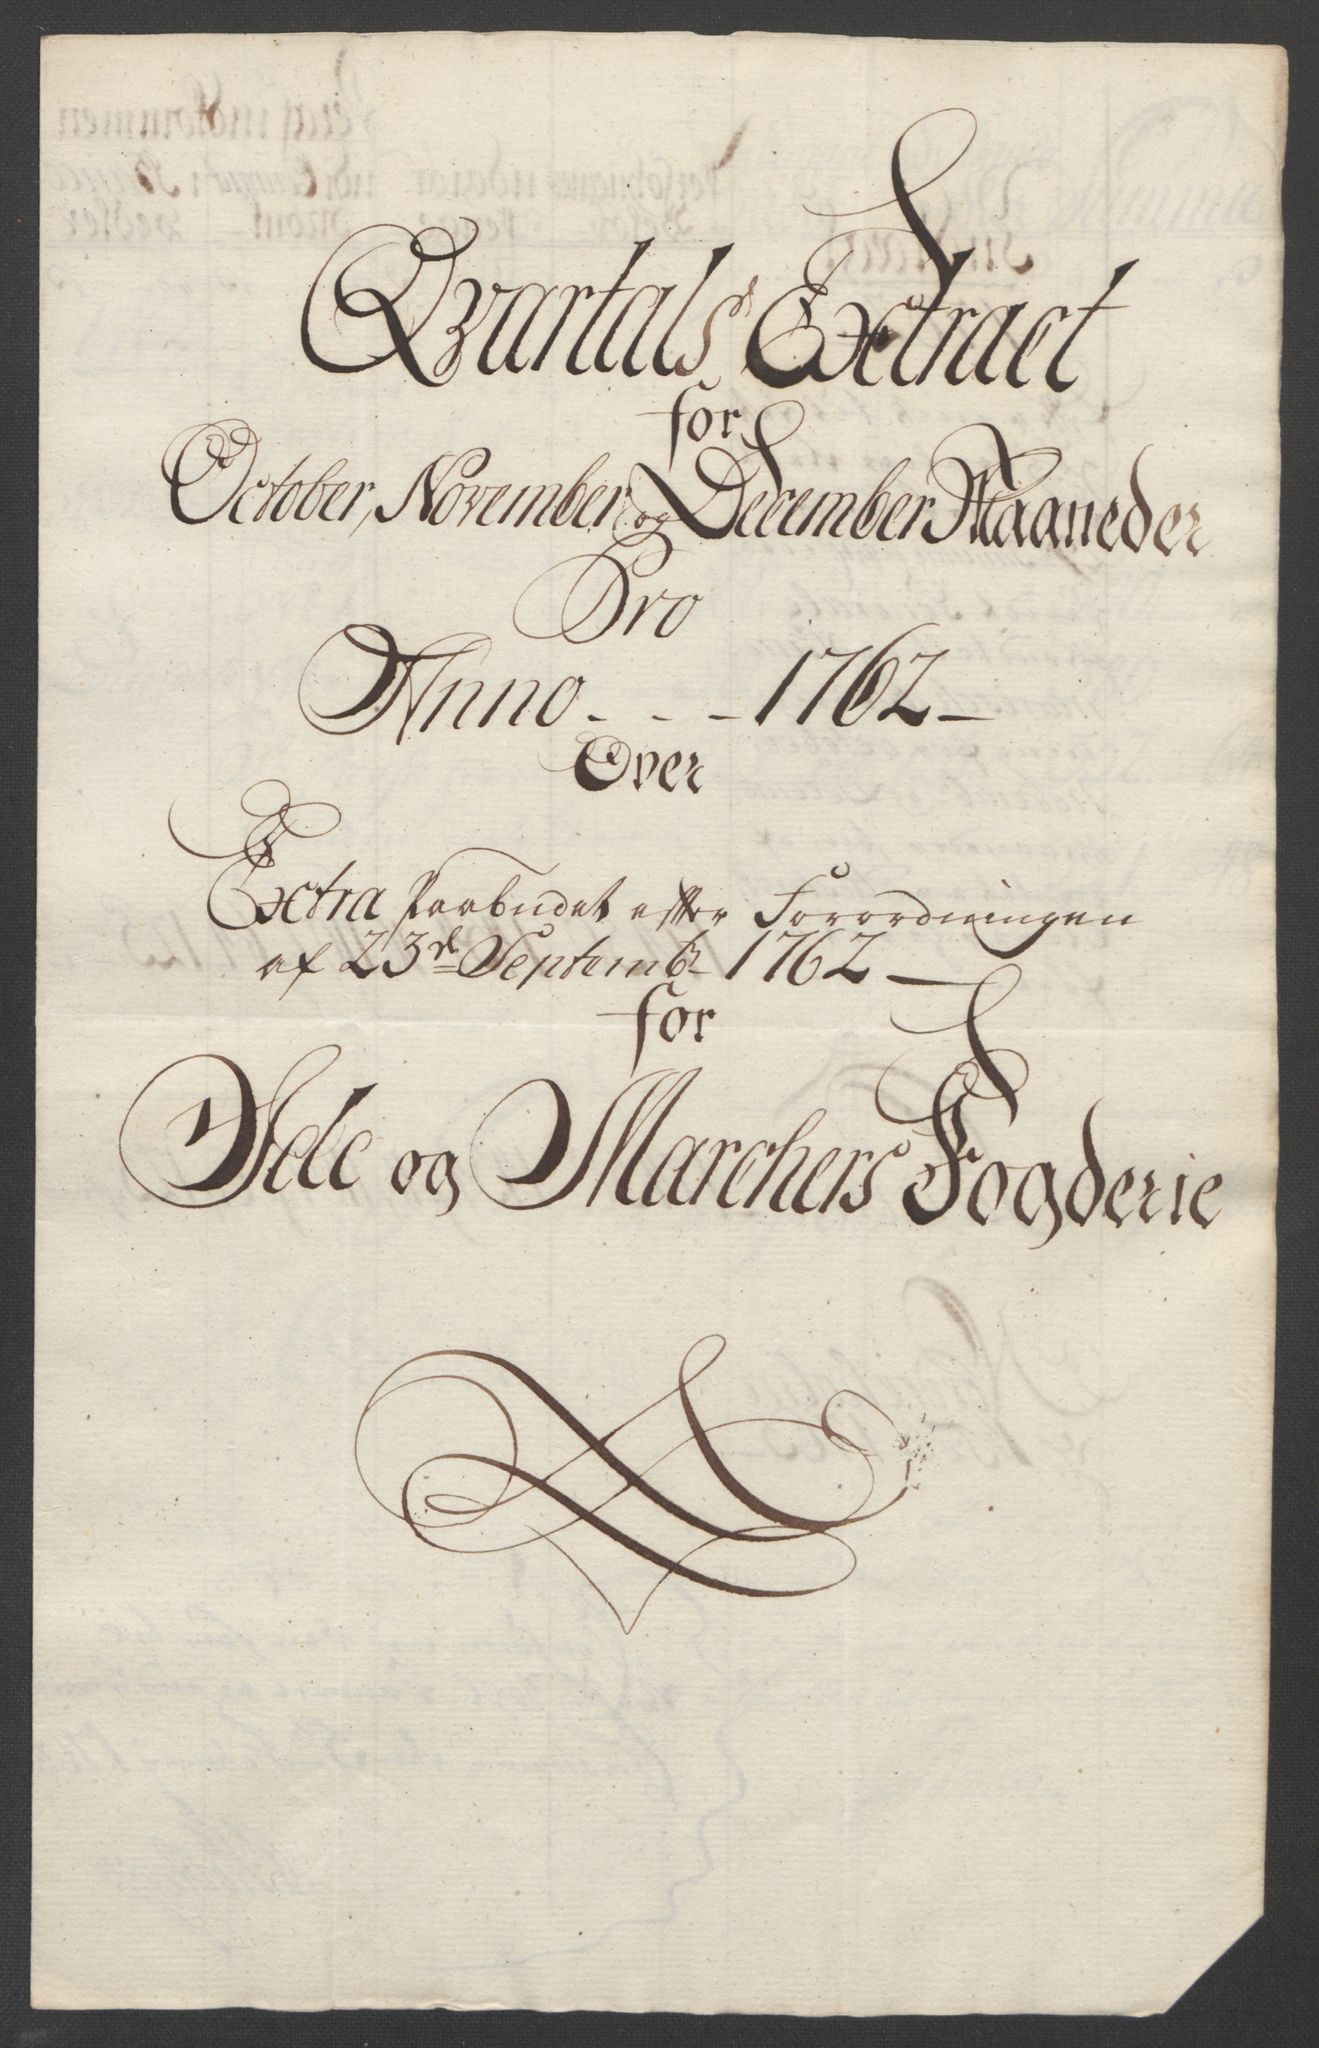 Qvartals Extract
for
October, November og December Maaneder
Pro
Anno - - - 1762 -
Over
Extra Paabudet efter Forordningen
af 23de Septembr 1762 -
for
Idde og Marchers Fogderie